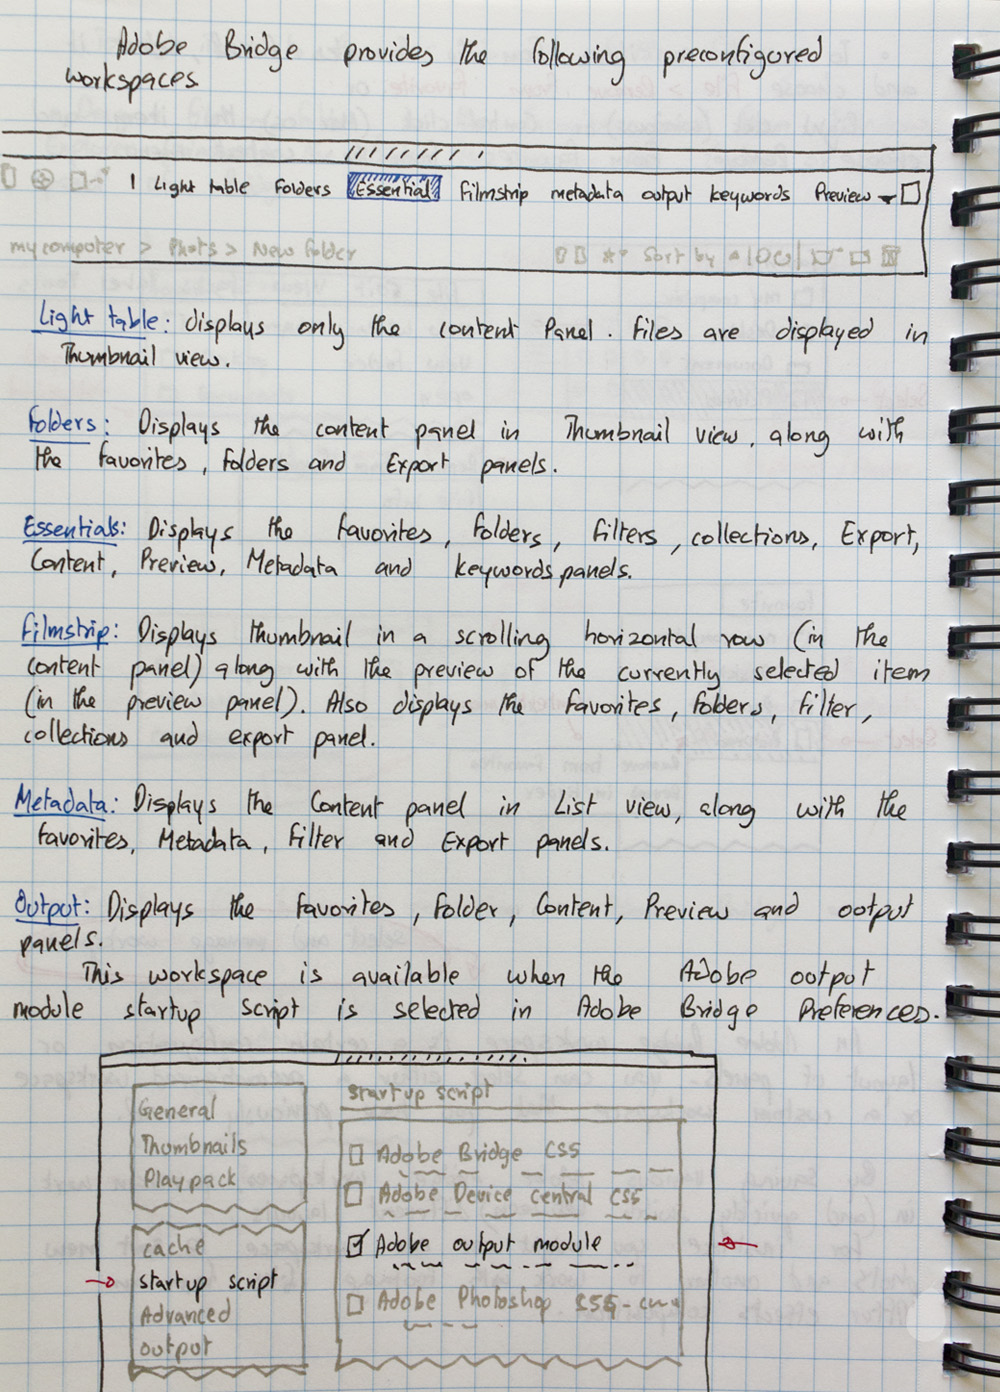 Adobe Bridge provides the following preconfigured
workspaces
Light table Folders Essential Filmstrip metadata output keywords Preview
my computer > Phots > New folder
Sort by
Light table: displays only the content Panel. Files are displayed in
Thumbnail view.
Folders: Displays the content panel in Thumbnail view, along with
the favorites, Folders and Export panels.
Essentials: Displays the favorites, Folders, Filters, collections, Export,
Content, Preview, Metadata and keywords panels.
Filmstrip: Displays thumbnail in a scrolling horizontal row (in the
content panel) along with the preview of the currently selected item
(in the preview panel). Also displays the favorites, Folders, Filter,
collections and export panel.
Metadata: Displays the Content panel in List view, along with the
favorites, Metadata, Filter and Export panels.
Output: Displays the favorites, Folder, Content, Preview and output
panels.
This workspace is available when the Adobe output
module startup Script is selected in Adobe Bridge Preferences.
General
Thumbnails
Playpack
cache
startup script
Advanced
output
startup script
Adobe Bridge CS5
Adobe Device central CS5
Adobe output module
Adobe Photoshop CS5